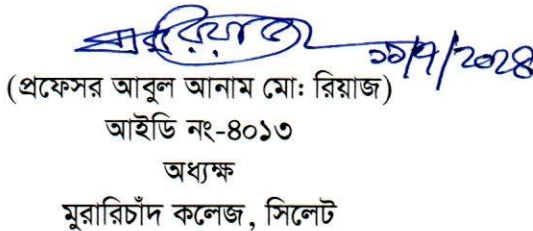 ১১/৭/২০২৪
(প্রফেসর আবুল আনাম মো: রিয়াজ)
আইডি নং-৪০১৩
অধ্যক্ষ
মুরারিচাঁদ কলেজ, সিলেট